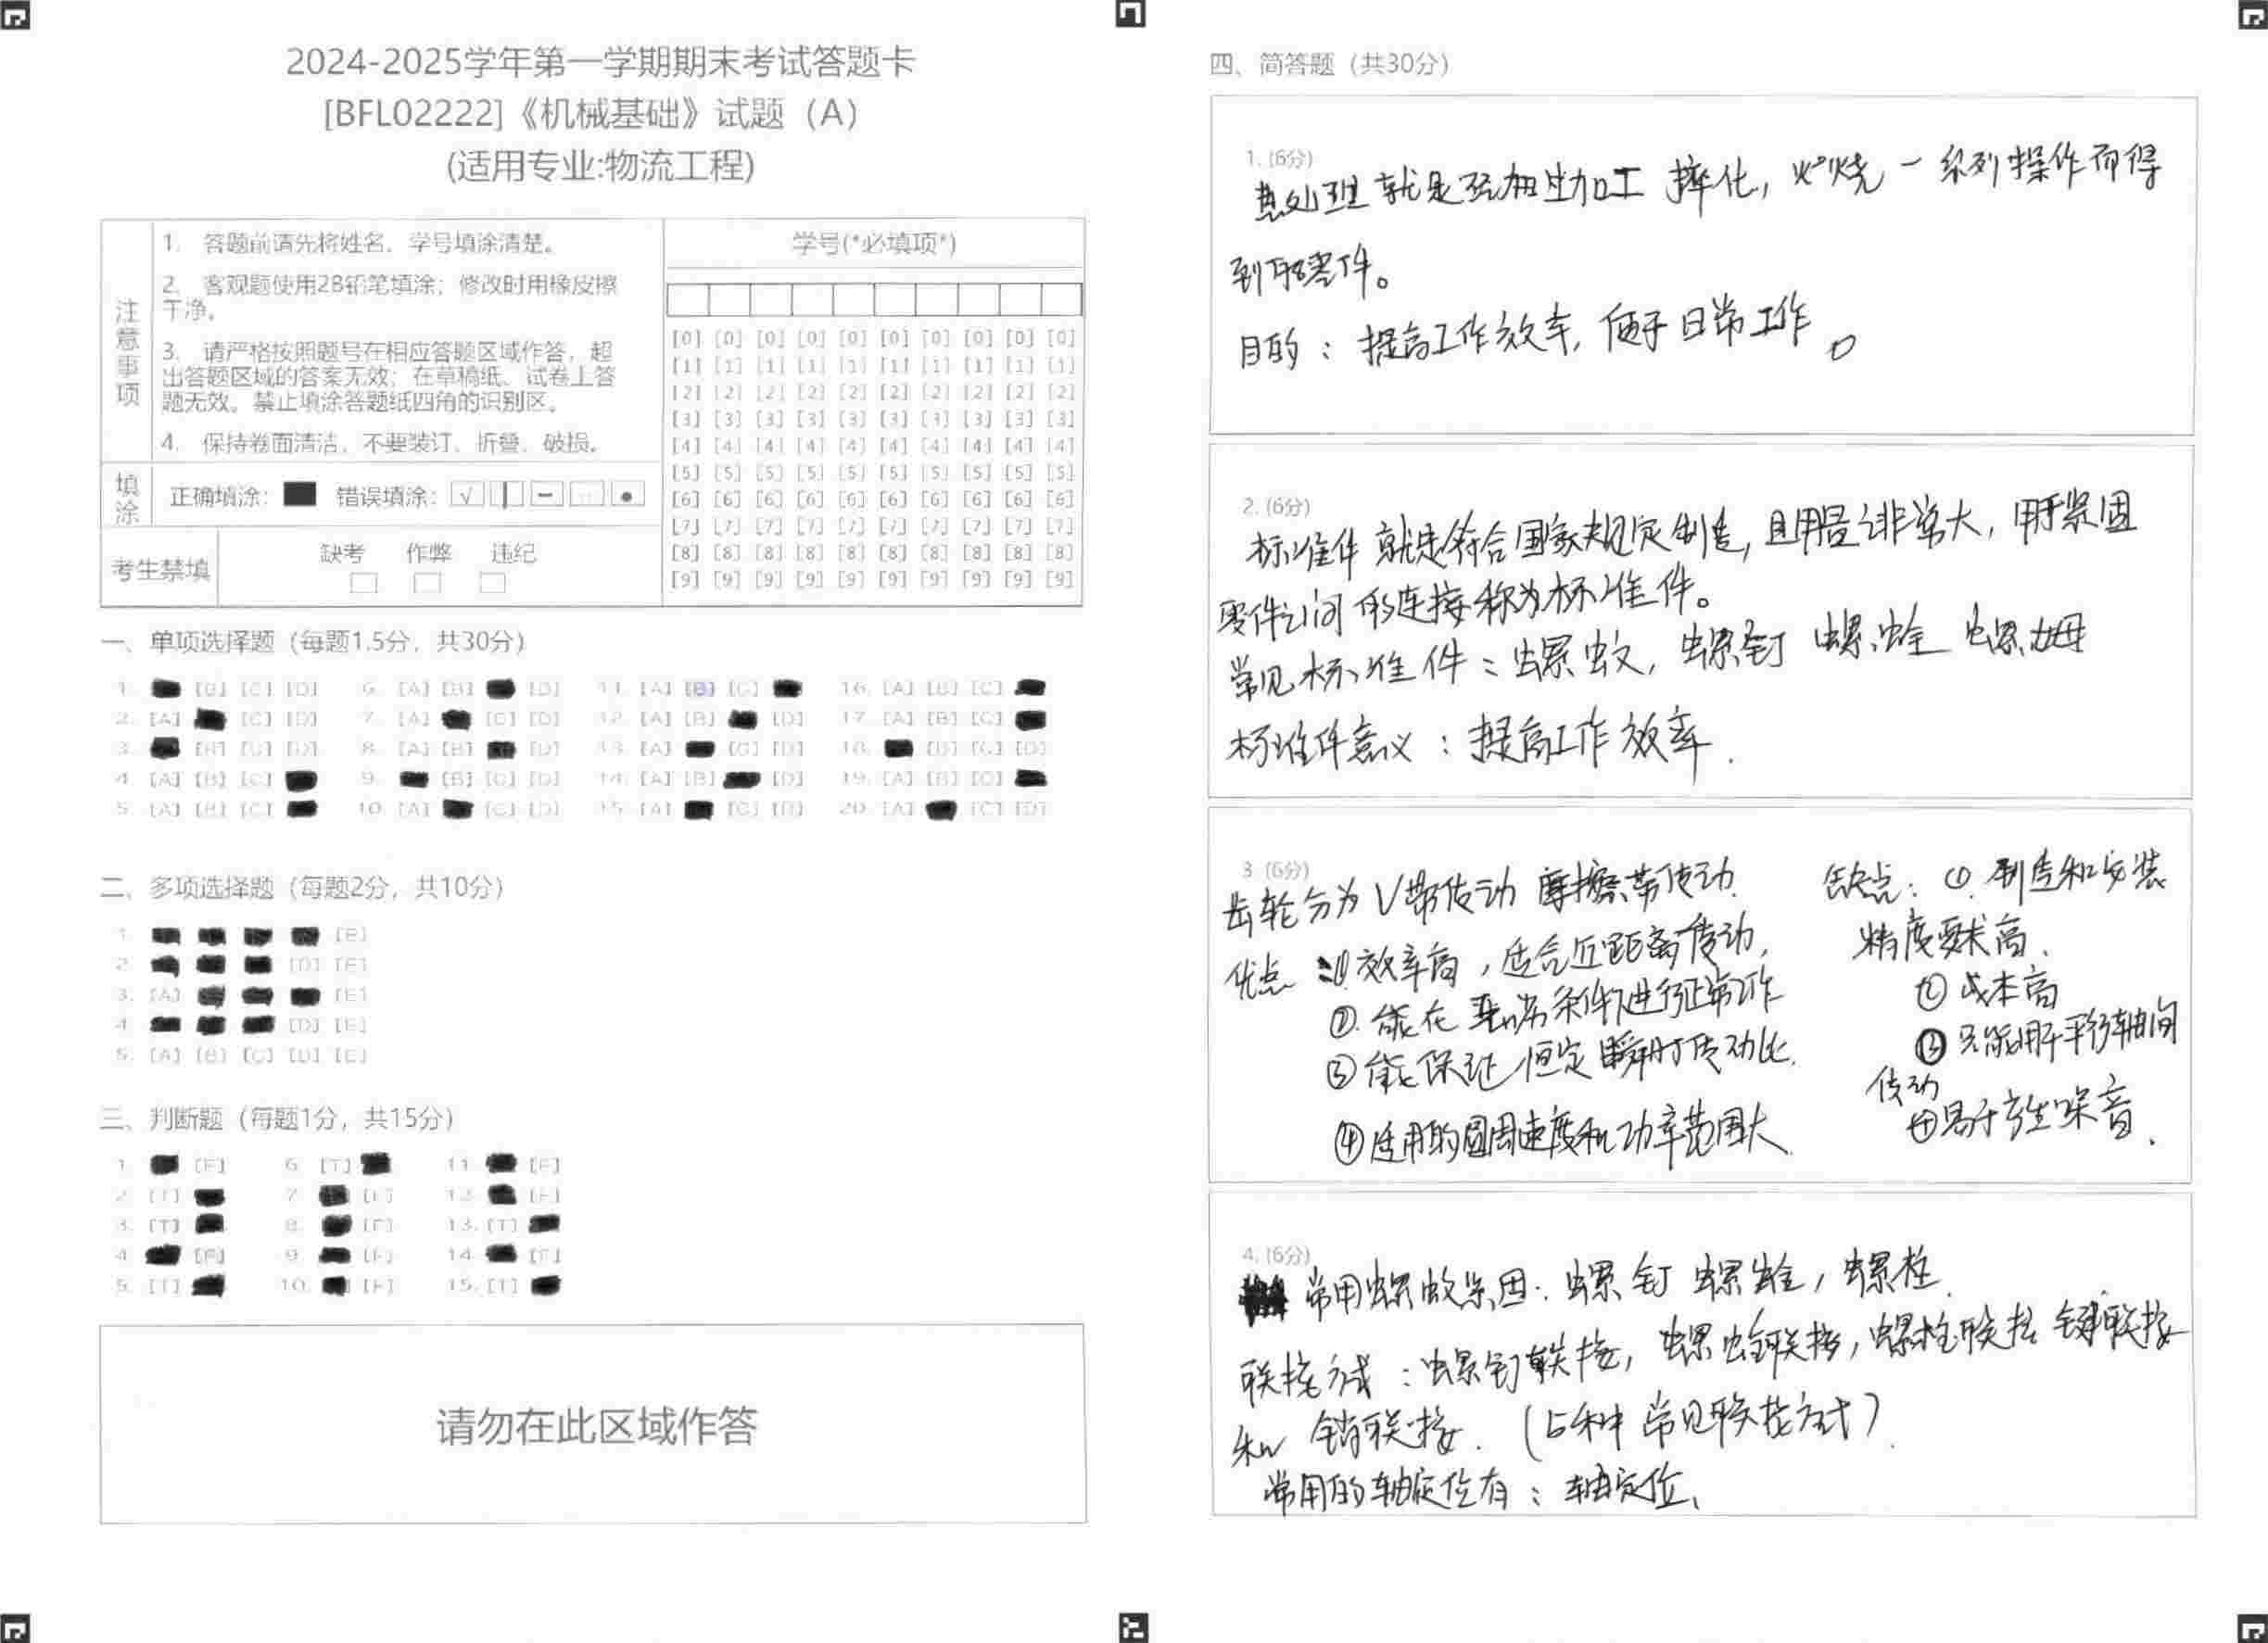 2024-2025学年第一学期期末考试答题卡
[BFL02222]《机械基础》试题（A）
(适用专业:物流工程)
注意事项
1. 答题前请先将姓名、学号填涂清楚。
2. 客观题使用2B铅笔填涂；修改时用橡皮擦
干净。
3. 请严格按照题号在相应答题区域作答，超
出答题区域的答案无效；在草稿纸、试卷上答
题无效。禁止填涂答题纸四角的识别区。
4. 保持卷面清洁，不要装订、折叠、破损。
填涂
正确填涂： 错误填涂：
考生禁填
缺考 作弊 违纪
学号(*必填项*)
[0] [0] [0] [0] [0] [0] [0] [0] [0] [0]
[1] [1] [1] [1] [1] [1] [1] [1] [1] [1]
[2] [2] [2] [2] [2] [2] [2] [2] [2] [2]
[3] [3] [3] [3] [3] [3] [3] [3] [3] [3]
[4] [4] [4] [4] [4] [4] [4] [4] [4] [4]
[5] [5] [5] [5] [5] [5] [5] [5] [5] [5]
[6] [6] [6] [6] [6] [6] [6] [6] [6] [6]
[7] [7] [7] [7] [7] [7] [7] [7] [7] [7]
[8] [8] [8] [8] [8] [8] [8] [8] [8] [8]
[9] [9] [9] [9] [9] [9] [9] [9] [9] [9]
一、单项选择题（每题1.5分，共30分）
1. [B] [C] [D] 6. [A] [B] [D] 11. [A] [B] [C] 16. [A] [B] [C]
2. [A] [C] [D] 7. [A] [C] [D] 12. [A] [B] [D] 17. [A] [B] [C]
3. [B] [C] [D] 8. [A] [B] [D] 13. [A] [C] [D] 18. [B] [C] [D]
4. [A] [B] [C] 9. [B] [C] [D] 14. [A] [B] [D] 19. [A] [B] [C]
5. [A] [B] [C] 10. [A] [C] [D] 15. [A] [C] [D] 20. [A] [C] [D]
二、多项选择题（每题2分，共10分）
1. [E]
2. [D] [E]
3. [A] [E]
4. [D] [E]
5. [A] [B] [C] [D] [E]
三、判断题（每题1分，共15分）
1. [F] 6. [T] 11. [F]
2. [T] 7. [F] 12. [F]
3. [T] 8. [F] 13. [T]
4. [F] 9. [F] 14. [F]
5. [T] 10. [F] 15. [T]
请勿在此区域作答
四、简答题（共30分）
1. (6分)
热处理就是经过加工 ，火烧一系列操作而得
到的零件。
目的：提高工作效率，便于日常工作。
2. (6分)
标准件就是符合国家规定制造，且用量非常大，用于紧固
零件之间的连接称为标准件。
常见标准件：螺蚊，螺钉 螺蛉 螺母
标准件意义：提高工作效率.
3 (6分)
齿轮分为V带传动 摩擦带传动.
优点：①效率高，适合近距离传动，
②.能在 条件下进行正常工作
③能保证恒定瞬时传动比.
④适用的圆周速度和功率范围大
缺点：①.制造和安装
精度要求高.
②成本高
③只能用于平行轴间
传动
④易于产生噪音.
4. (6分)
常用螺蚊紧固：螺钉 螺蛉，螺栓.
联接方式：螺钉联接，螺蛉联接，螺栓联接 键联接
和 销联接.（5种常见联接方式）.
常用的轴定位有：轴定位、